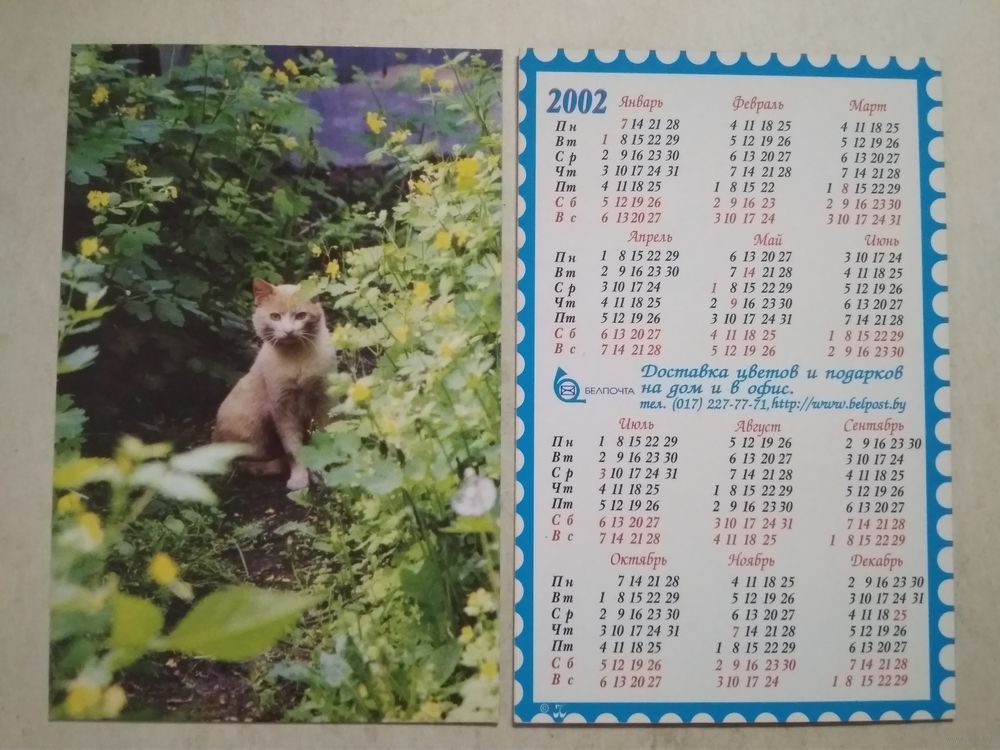 2002 Январь Февраль Март
Пн 7 14 21 28 4 11 18 25 4 11 18 25
Вт 1 8 15 22 29 5 12 19 26 5 12 19 26
Ср 2 9 16 23 30 6 13 20 27 6 13 20 27
Чт 3 10 17 24 31 7 14 21 28 7 14 21 28
Пт 4 11 18 25 1 8 15 22 1 8 15 22 29
Сб 5 12 19 26 2 9 16 23 2 9 16 23 30
Вс 6 13 20 27 3 10 17 24 3 10 17 24 31
Апрель Май Июнь
Пн 1 8 15 22 29 6 13 20 27 3 10 17 24
Вт 2 9 16 23 30 7 14 21 28 4 11 18 25
Ср 3 10 17 24 1 8 15 22 29 5 12 19 26
Чт 4 11 18 25 2 9 16 23 30 6 13 20 27
Пт 5 12 19 26 3 10 17 24 31 7 14 21 28
Сб 6 13 20 27 4 11 18 25 1 8 15 22 29
Вс 7 14 21 28 5 12 19 26 2 9 16 23 30
БЕЛПОЧТА
Доставка цветов и подарков
на дом и в офис.
тел. (017) 227-77-71, http://www.belpost.by
Июль Август Сентябрь
Пн 1 8 15 22 29 5 12 19 26 2 9 16 23 30
Вт 2 9 16 23 30 6 13 20 27 3 10 17 24
Ср 3 10 17 24 31 7 14 21 28 4 11 18 25
Чт 4 11 18 25 1 8 15 22 29 5 12 19 26
Пт 5 12 19 26 2 9 16 23 30 6 13 20 27
Сб 6 13 20 27 3 10 17 24 31 7 14 21 28
Вс 7 14 21 28 4 11 18 25 1 8 15 22 29
Октябрь Ноябрь Декабрь
Пн 7 14 21 28 4 11 18 25 2 9 16 23 30
Вт 1 8 15 22 29 5 12 19 26 3 10 17 24 31
Ср 2 9 16 23 30 6 13 20 27 4 11 18 25
Чт 3 10 17 24 31 7 14 21 28 5 12 19 26
Пт 4 11 18 25 1 8 15 22 29 6 13 20 27
Сб 5 12 19 26 2 9 16 23 30 7 14 21 28
Вс 6 13 20 27 3 10 17 24 1 8 15 22 29